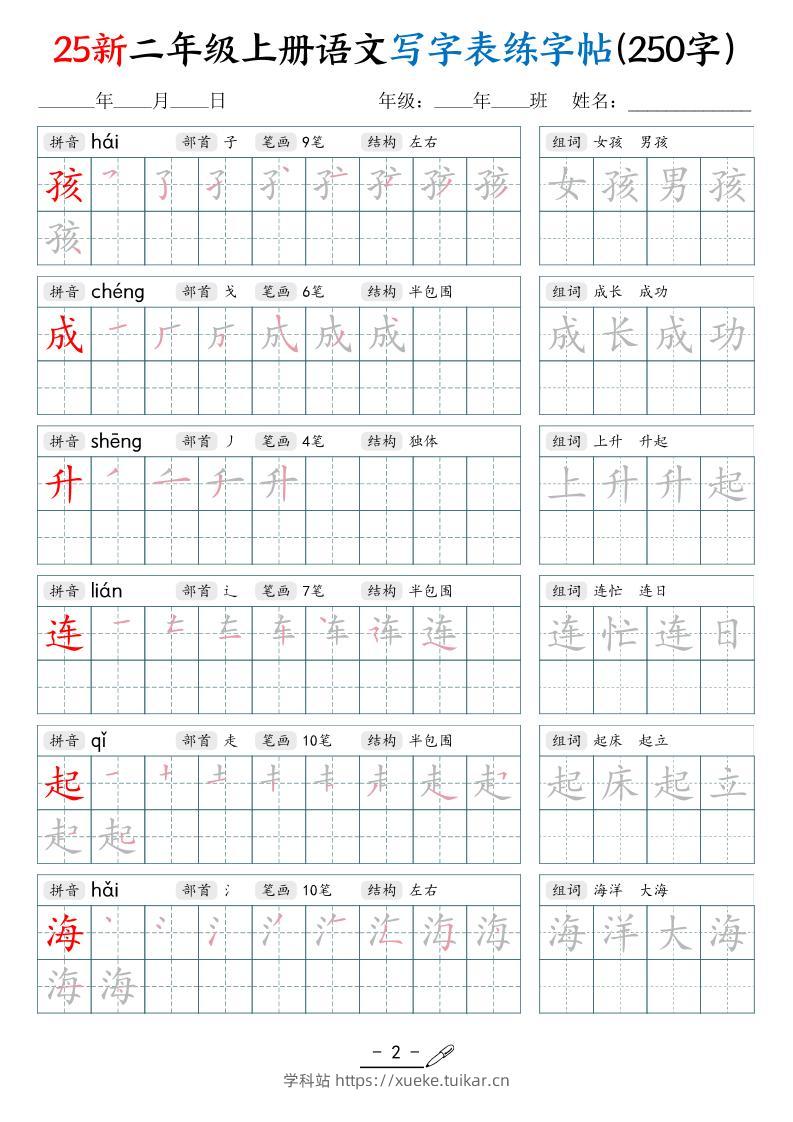 25新二年级上册语文写字表练字帖(250字)
______年____月____日 年级：____年____班 姓名：_____________
拼音 hái 部首 子 笔画 9笔 结构 左右 组词 女孩 男孩
孩 孩 女孩男孩
孩
拼音 chéng 部首 戈 笔画 6笔 结构 半包围 组词 成长 成功
成 成 成长成功
拼音 shēng 部首 丿 笔画 4笔 结构 独体 组词 上升 升起
升 升 上升升起
拼音 lián 部首 辶 笔画 7笔 结构 半包围 组词 连忙 连日
连 连 连忙连日
拼音 qǐ 部首 走 笔画 10笔 结构 半包围 组词 起床 起立
起 起床起立
起 起
拼音 hǎi 部首 氵 笔画 10笔 结构 左右 组词 海洋 大海
海 海洋大海
海 海
- 2 -
学科站 https://xueke.tuikar.cn